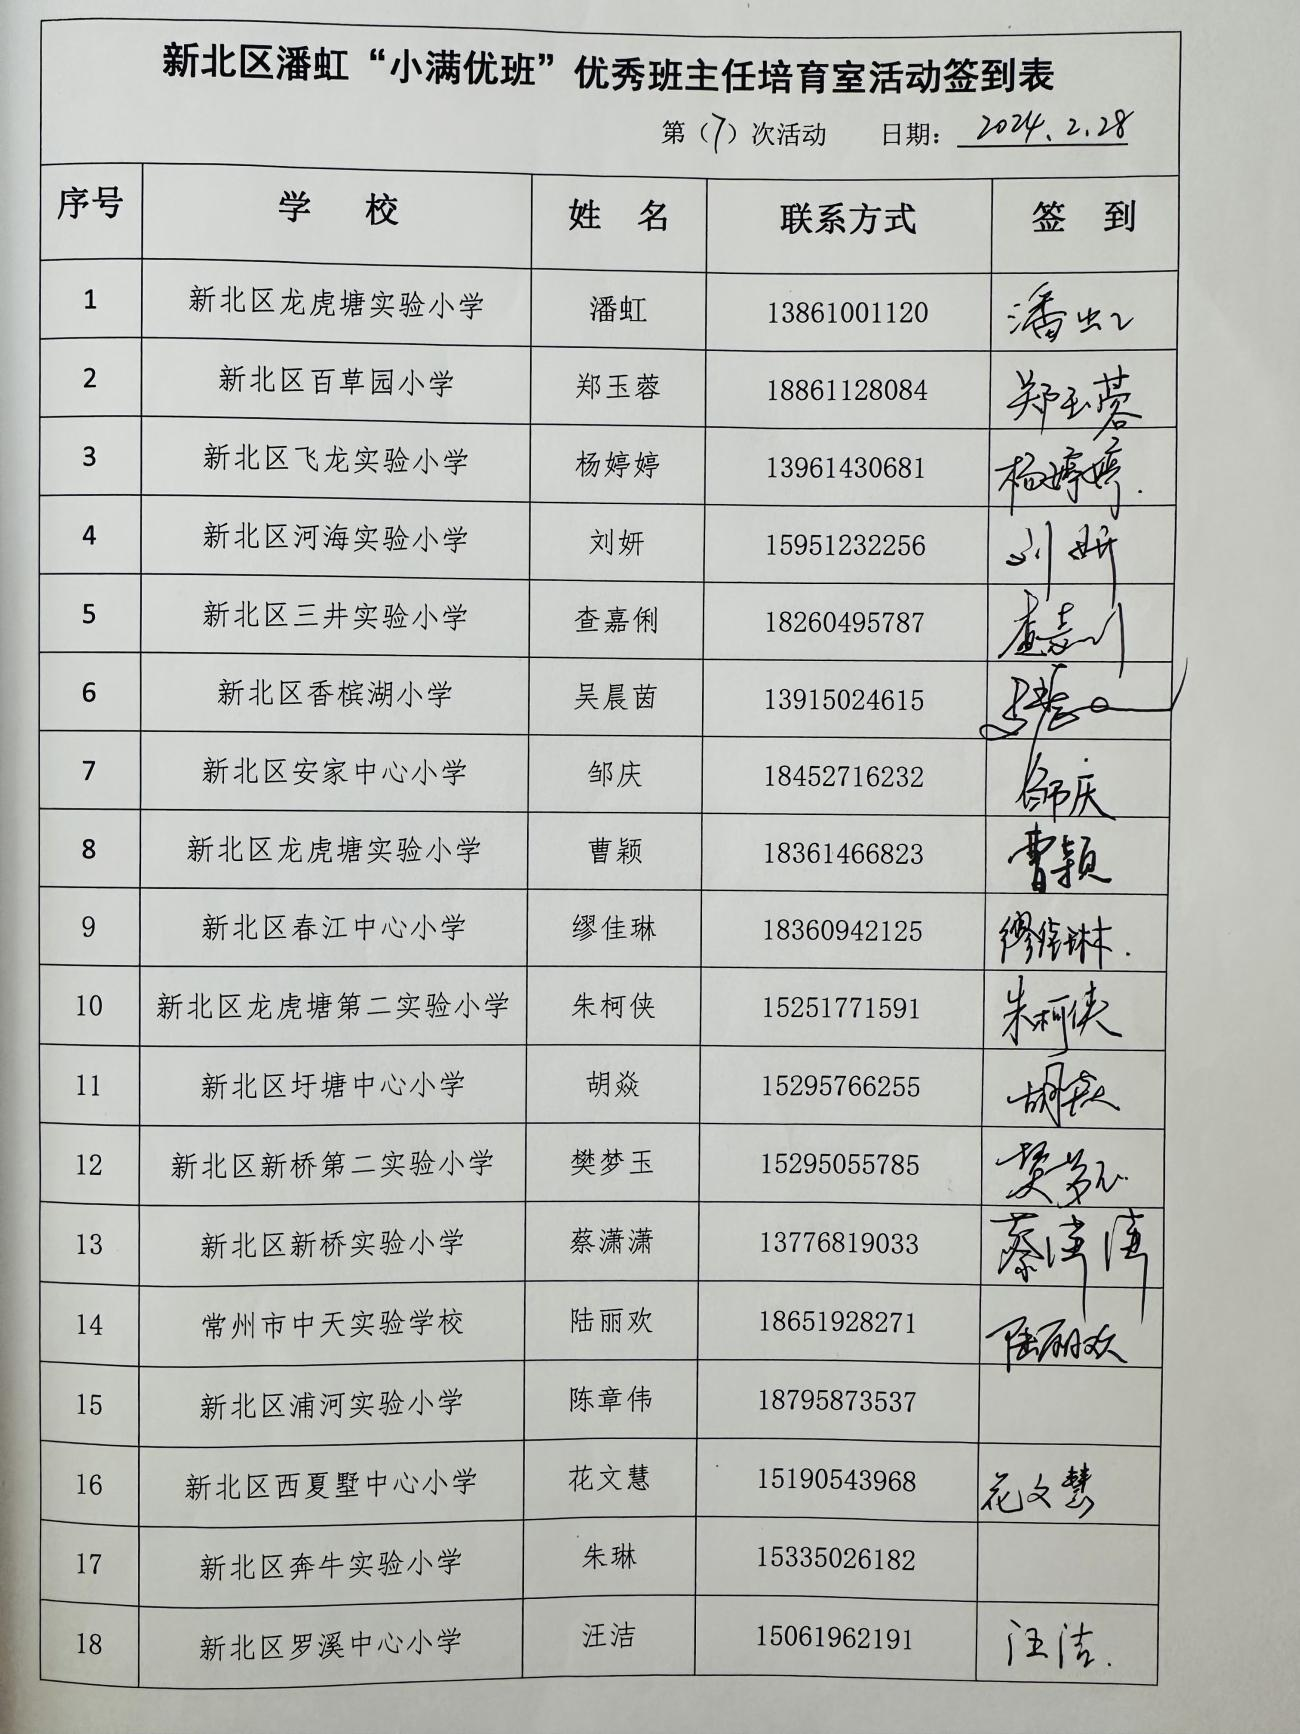 新北区潘虹“小满优班”优秀班主任培育室活动签到表
第（7）次活动 日期：2024.2.28
序号 学 校 姓 名 联系方式 签 到
1 新北区龙虎塘实验小学 潘虹 13861001120 潘虹
2 新北区百草园小学 郑玉蓉 18861128084 郑玉蓉
3 新北区飞龙实验小学 杨婷婷 13961430681 杨婷婷.
4 新北区河海实验小学 刘妍 15951232256 刘妍
5 新北区三井实验小学 查嘉俐 18260495787 查嘉俐
6 新北区香槟湖小学 吴晨茵 13915024615
7 新北区安家中心小学 邹庆 18452716232 邹庆
8 新北区龙虎塘实验小学 曹颖 18361466823 曹颖
9 新北区春江中心小学 缪佳琳 18360942125 缪佳琳.
10 新北区龙虎塘第二实验小学 朱柯侠 15251771591 朱柯侠
11 新北区圩塘中心小学 胡焱 15295766255 胡焱
12 新北区新桥第二实验小学 樊梦玉 15295055785 樊梦玉
13 新北区新桥实验小学 蔡潇潇 13776819033 蔡潇潇
14 常州市中天实验学校 陆丽欢 18651928271 陆丽欢
15 新北区浦河实验小学 陈章伟 18795873537
16 新北区西夏墅中心小学 花文慧 15190543968 花文慧
17 新北区奔牛实验小学 朱琳 15335026182
18 新北区罗溪中心小学 汪洁 15061962191 汪洁.